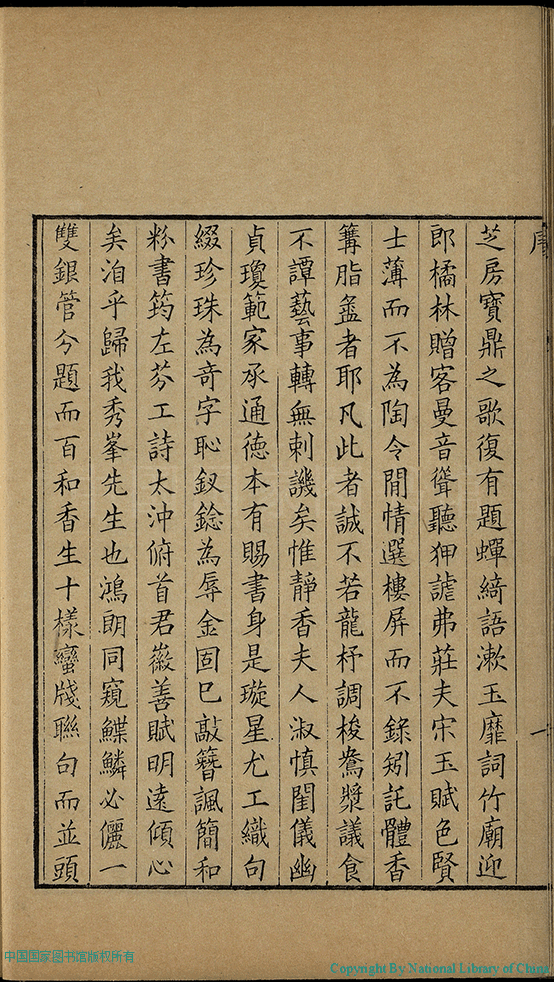 芝房寶鼎之歌復有題蟬綺語漱玉靡詞竹廟迎
郎橘林贈客曼音聳聽狎謔弗莊夫宋玉賦色賢
士薄而不為陶令閒情選樓屏而不錄矧託體香
篝脂盝者耶凡此者誠不若龍杼調梭鴦漿議食
不譚藝事轉無刺譏矣惟靜香夫人淑慎閨儀幽
貞瓊範家承通德本有賜書身是璇星尤工織句
綴珍珠為竒字恥釵為辱金固巳敲簪諷簡和
粉書筠左芬工詩太沖俯首君徽善賦明遠傾心
矣洎乎歸我秀峯先生也鴻朗同窺鰈鱗必儷一
雙銀管今題而百和香生十樣蠻牋聯句而並頭
一
中国国家图书馆版权所有
Copyright By National Library of China